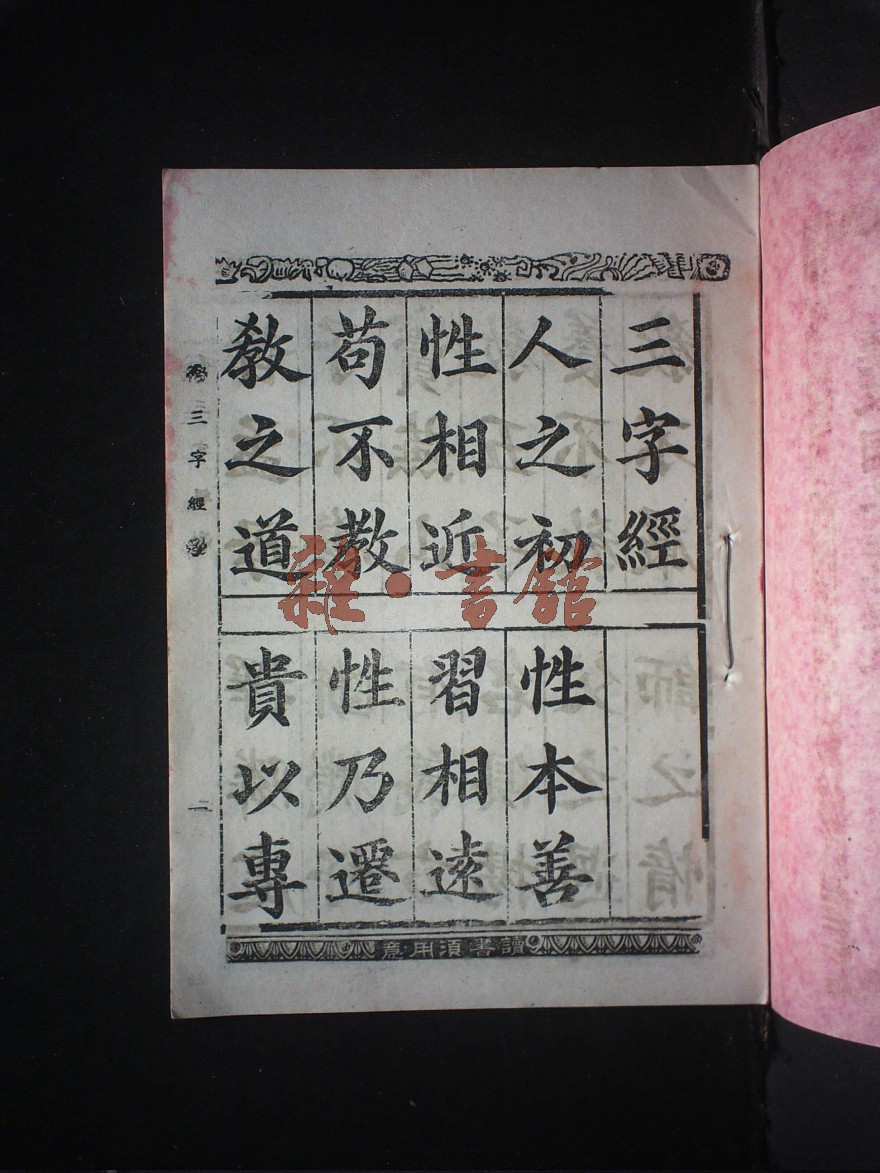 三字經
人之初
性本善
性相近
習相遠
苟不教
性乃遷
教之道
貴以專
三字經
二
讀書須用意
雜·書館